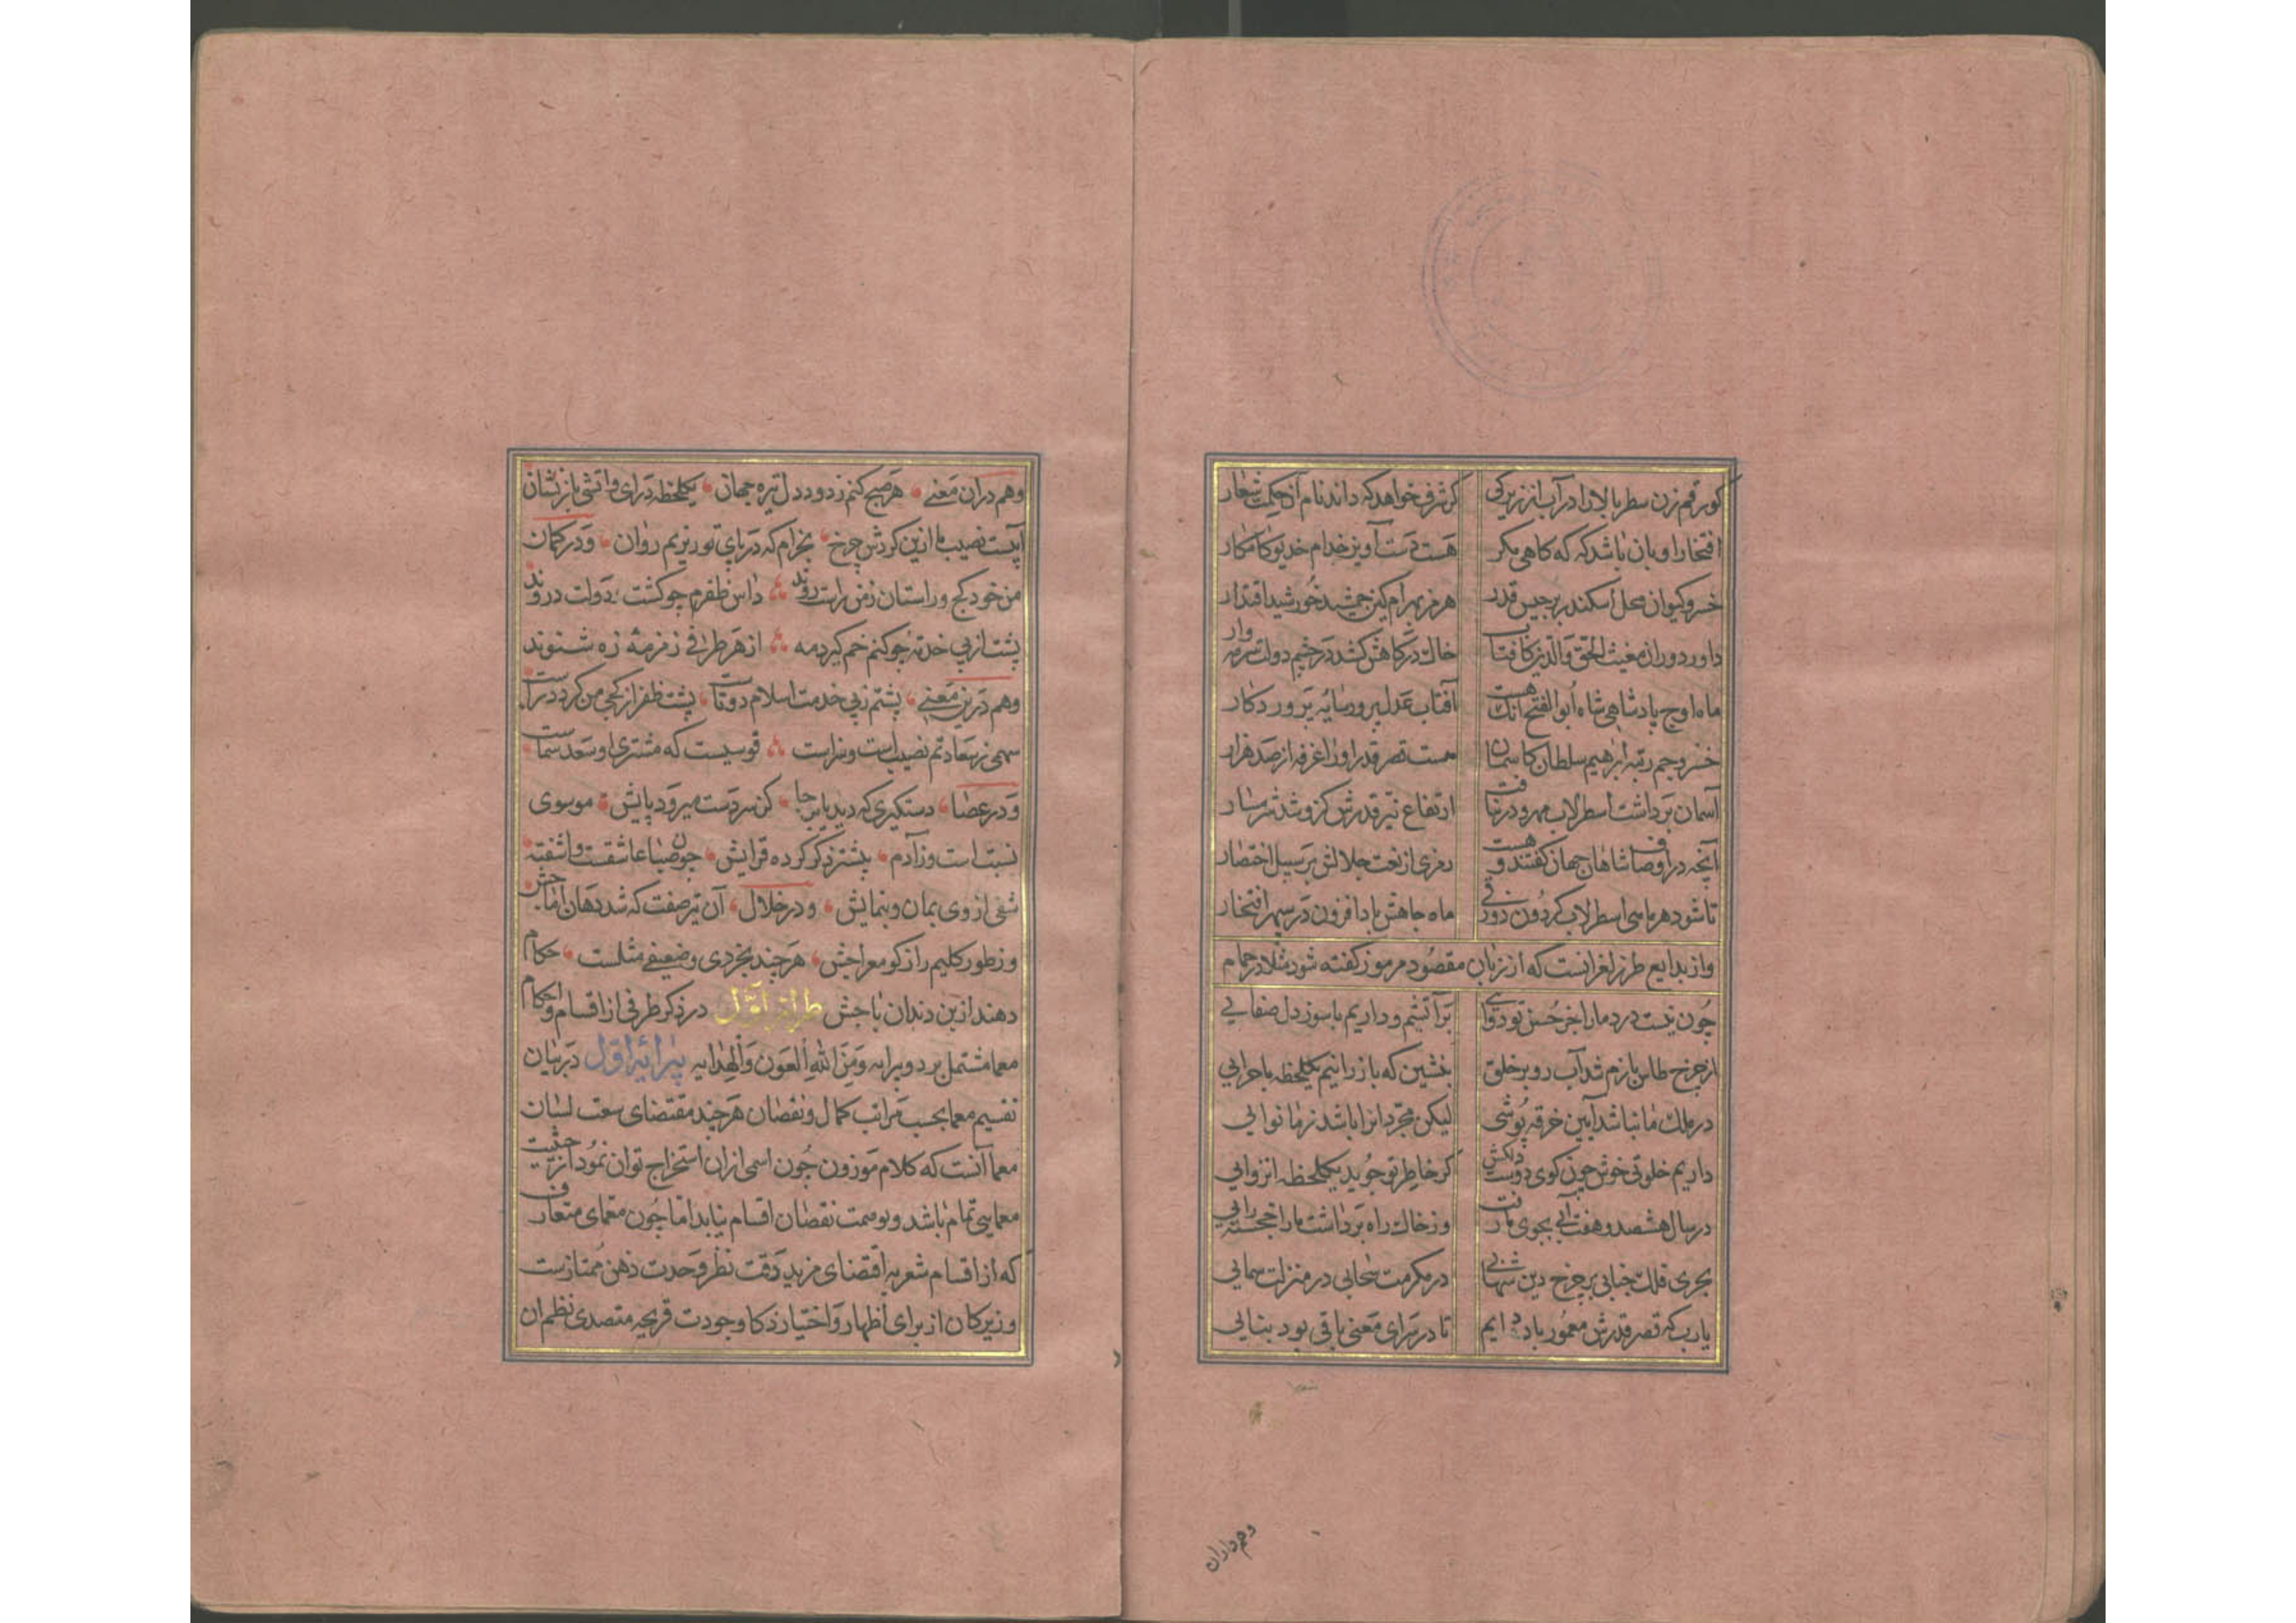 کو رقم زن سطر بالا را در آب از زیرکی گر شرف خواهد که داند نام آن حکمت شعار
افتخار او بان باشد که که کاهی مکر هست دست آویز خدام خدیو کامکار
خسرو کیوان محل اسکندر برجیس قدر هرمز بهرام کین جمشید خورشید اقتدار
داور دوران مغیث الحق والدین کافتاب خاک درکاهش کشد در چشم دولت سرمه وار
ماه اوج پادشاهی شاه ابوالفتح آنک هست آفتاب عدل پرور سایه پروردکار
خسرو جم رتبه ابرهیم سلطان کاسمان هست قصر قدر او را غرفه از صد هزار
آسمان برداشت اسطرلاب مهر و در نیافت ارتفاع نیر قدرش کزو شد شرمسار
آنچه در اوصاف شاهان جهان کفتند و هست رمزی از نعت جلالش بر سبیل اختصار
تا شود هر ماسی اسطرلاب کردون دور فی ماه جاهش بادا فزون در سپهر افتخار
واز بدایع طرز لغز انست که از زبان مقصود مرموز کفته شود مثلا در حمام
چون نیست درد ما را جز حسن تو دوایی بر آتشیم و داریم با سوز دل صفایی
از چرخ طاس بازم شد آب رو بر خلق بنشین که باز رانیم یکلحظه ماجرایی
در ملک ما نباشد آیین خرقه پوشی لیکن مجردانرا باشد ز ما نوایی
داریم خلوتی خوش چون کوی دوست دلکش کر خاطر تو جوید یکلحظه انزوایی
در سال هشصد و هفت آبی بجوی ما رفت وز خاک راه برداشت ما را خجسته رایی
بحری فلک جنابی بر چرخ دین شهابی در مکرمت سحابی در منزلت سمایی
یارب که قصر قدرش معمور باد دایم تا در سرای معنی باقی بود بنایی
وهم دران
وهم دران معنی هر صبح کنم ز دود دل تیره جهان یکلحظه درای و آتشی باز نشان
آبیست نصیب ما ازین کردش چرخ بخرام که در پای تو ریزیم روان ودر کمان
من خود کج و راستان ز من راست روند داس ظفرم چو کشت دولت دروند
پشت از پی خدمت چو کنم خم کیرد مه از هر طرفی زمزمه زه شنوند
وهم درین معنی پشتم ز پی خدمت اسلام دوتاست پشت ظفر از کجی من کردد راست
سهمی ز سعادتم نصیب است و سزاست قوسیست که مشتری او سعد سماست
ودر عصا دستکیری که دید پا بر جا کز سر دست میرود پایش موسوی
نسبت است وز آدم پیشتر ذکر کرده قرآیش چون صبا عاشقست و آشفته
شفی از وی بمان و بنمایش ودر خلال آن تیر صفت که شد دهان آماجش
وز طور کلیم راز کو معراجش هر چند بخردی و ضعیفی مثلست حکام
دهند از بن دندان باجش طراز اول در ذکر طرفی از اقسام و احکام
معما مشتمل بر دو پیرایه ومن الله العون والهدایه پیرایه اول در بیان
تقسیم معما بحسب مراتب کمال و نقصان هر چند مقتضای سعت لسان
معما آنست که کلام موزون چون اسمی ازان استخراج توان نمود از حیثیت
معمایی تمام باشد و بوصمت نقصان اقسام نیابد اما چون معمای متعارف
که از اقسام شعر به اقتضای مزید دقت نظر و حدت ذهن ممتازست
و زیرکان از برای اظهار و اختیار ذکا و جودت قریحه متصدی نظم ان